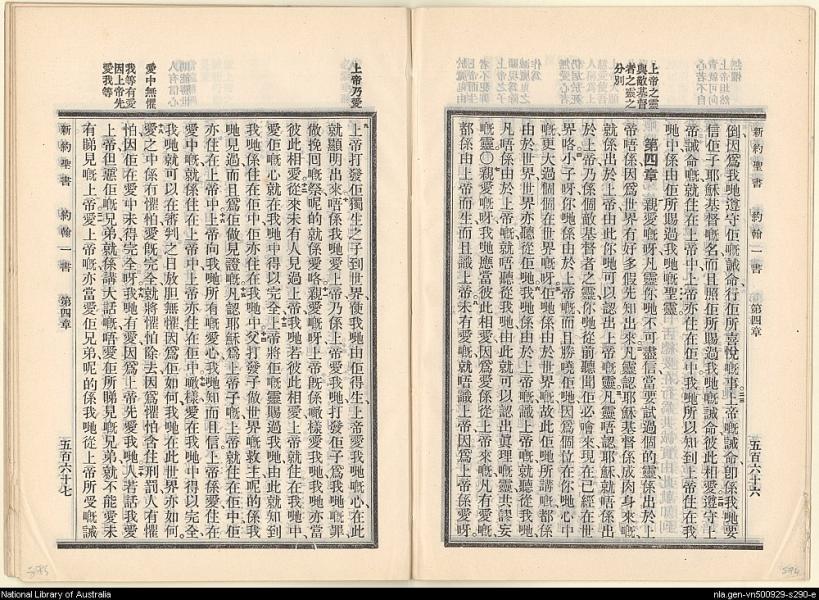 新約聖書 約翰一書 第四章 五百六十六
上帝之靈
與敵基督
者之靈之
分別
倒因爲我哋遵守佢嘅誡命行佢所喜悅嘅事上帝嘅誡命卽係我哋要
信佢子耶穌基督嘅名而且照佢所賜過我哋嘅誡命彼此相愛遵守上
帝誡命嘅就住在上帝中上帝亦住在佢中我哋所以知到上帝住在我
哋中係由佢所賜過我哋嘅聖靈
第四章
親愛嘅呀凡靈你哋不可盡信當要試過個的靈係出於上
帝唔係因爲世界有好多假先知出來凡靈認耶穌基督係成肉身來嘅
就係出於上帝由此你哋可以認出上帝嘅靈凡靈唔認耶穌就唔係出
於上帝乃係個敵基督者之靈你哋從前聽聞佢必嚟來現在已經在世
界咯小子呀你哋係由於上帝嘅而且勝嘵佢哋因爲個位在你哋心中
嘅更大過個個在世界嘅呀佢哋係由於世界嘅故此佢哋所講嘅都係
由於世界嘅世界亦聽從佢哋我哋係由於上帝嘅識上帝嘅就聽從我哋
凡唔係由於上帝嘅就唔聽從我哋由此就可以認出眞理嘅靈共謬妄
嘅靈〇親愛嘅呀我哋應當彼此相愛因爲愛係從上帝來嘅凡有愛嘅
都係由上帝而生而且識上帝嘅未有愛嘅就唔識上帝因爲上帝係愛呀
上帝乃愛
愛中無懼
我等有愛
因上帝先
愛我等
上帝打發佢獨生之子到世界使我哋由佢得生上帝愛我哋嘅心在此
就顯明出來唔係我哋愛上帝乃係上帝愛我哋打發佢子爲我哋嘅罪
做挽回嘅祭呢的就係愛咯親愛嘅呀上帝旣係噉樣愛我哋我哋亦當
彼此相愛從來未有人見過上帝我哋若彼此相愛上帝就住在我哋中
愛佢嘅心就在我哋中得以完全上帝將佢嘅靈賜過我哋由此就知到
我哋係住在佢中佢亦住在我哋中父打發子做世界嘅救主呢的係我
哋見過而且爲佢做見證嘅凡認耶穌爲上帝子嘅上帝就住在佢中佢
亦住在上帝中上帝向我哋所有嘅愛心我哋知而且信上帝係愛住在
愛中嘅就係住在上帝中上帝亦住在佢中噉樣愛在我哋中得以完全
我哋就可以在審判之日放胆無懼因爲佢如何我哋在此世界亦如何
愛之中係冇懼怕愛旣完全就將懼怕除去因爲懼怕含住刑罰人有懼
怕因佢在愛中未得完全呀我哋有愛因爲上帝先愛我哋人若話我愛
上帝但惡佢嘅兄弟就係講大話嘅唔愛佢所睇見嘅兄弟就不能愛未
有睇見嘅上帝愛上帝嘅亦當愛佢兄弟呢的係我哋從上帝所受嘅誡
新約聖書 約翰一書 第四章 五百六十七
National Library of Australia
nla.gen-vn500929-s290-e